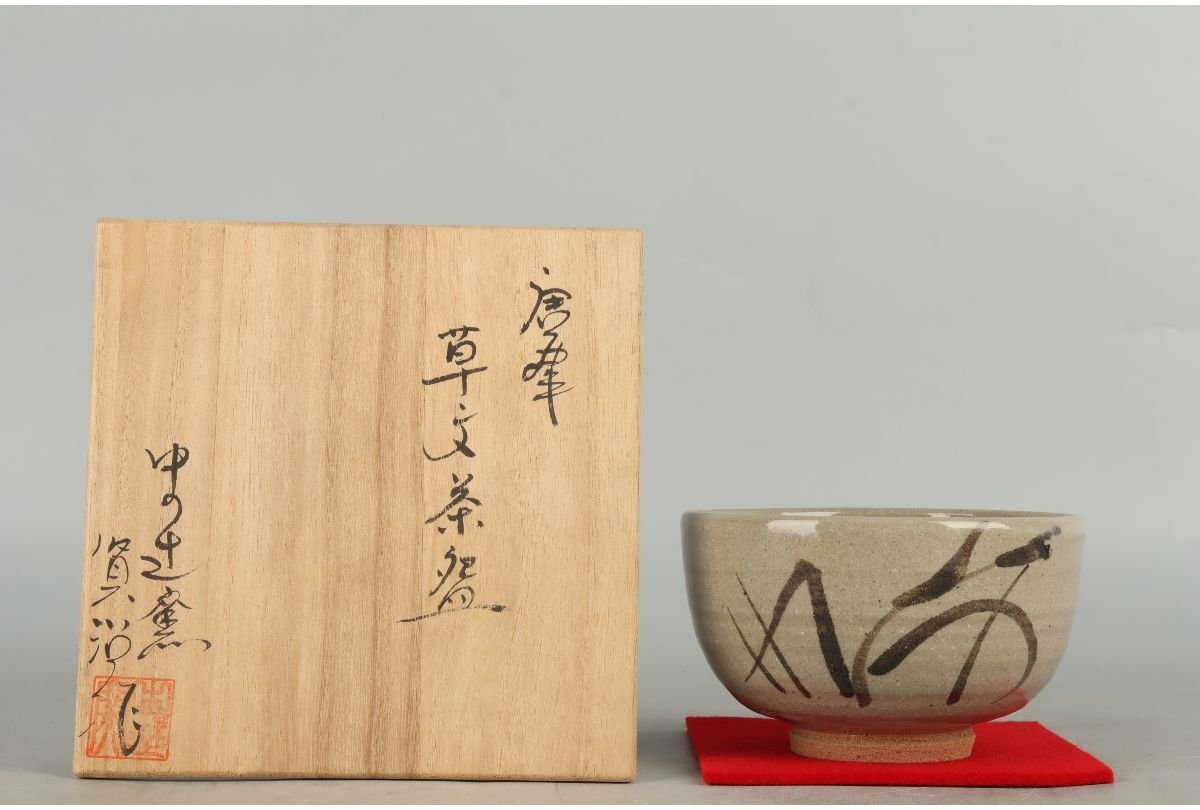 唐津
草文茶盌
中の辻窯
作